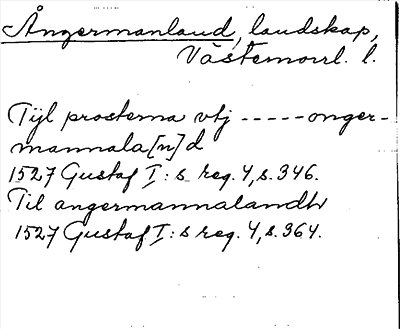 Ångermanland, landskap,
Västernorrl. l.
Tijl prosterna vtj ----- onger-
mannala[n]d
1527 Gustaf I:s reg. 4, s. 346.
Til angermannalandh
1527 Gustaf I:s reg. 4, s. 364.